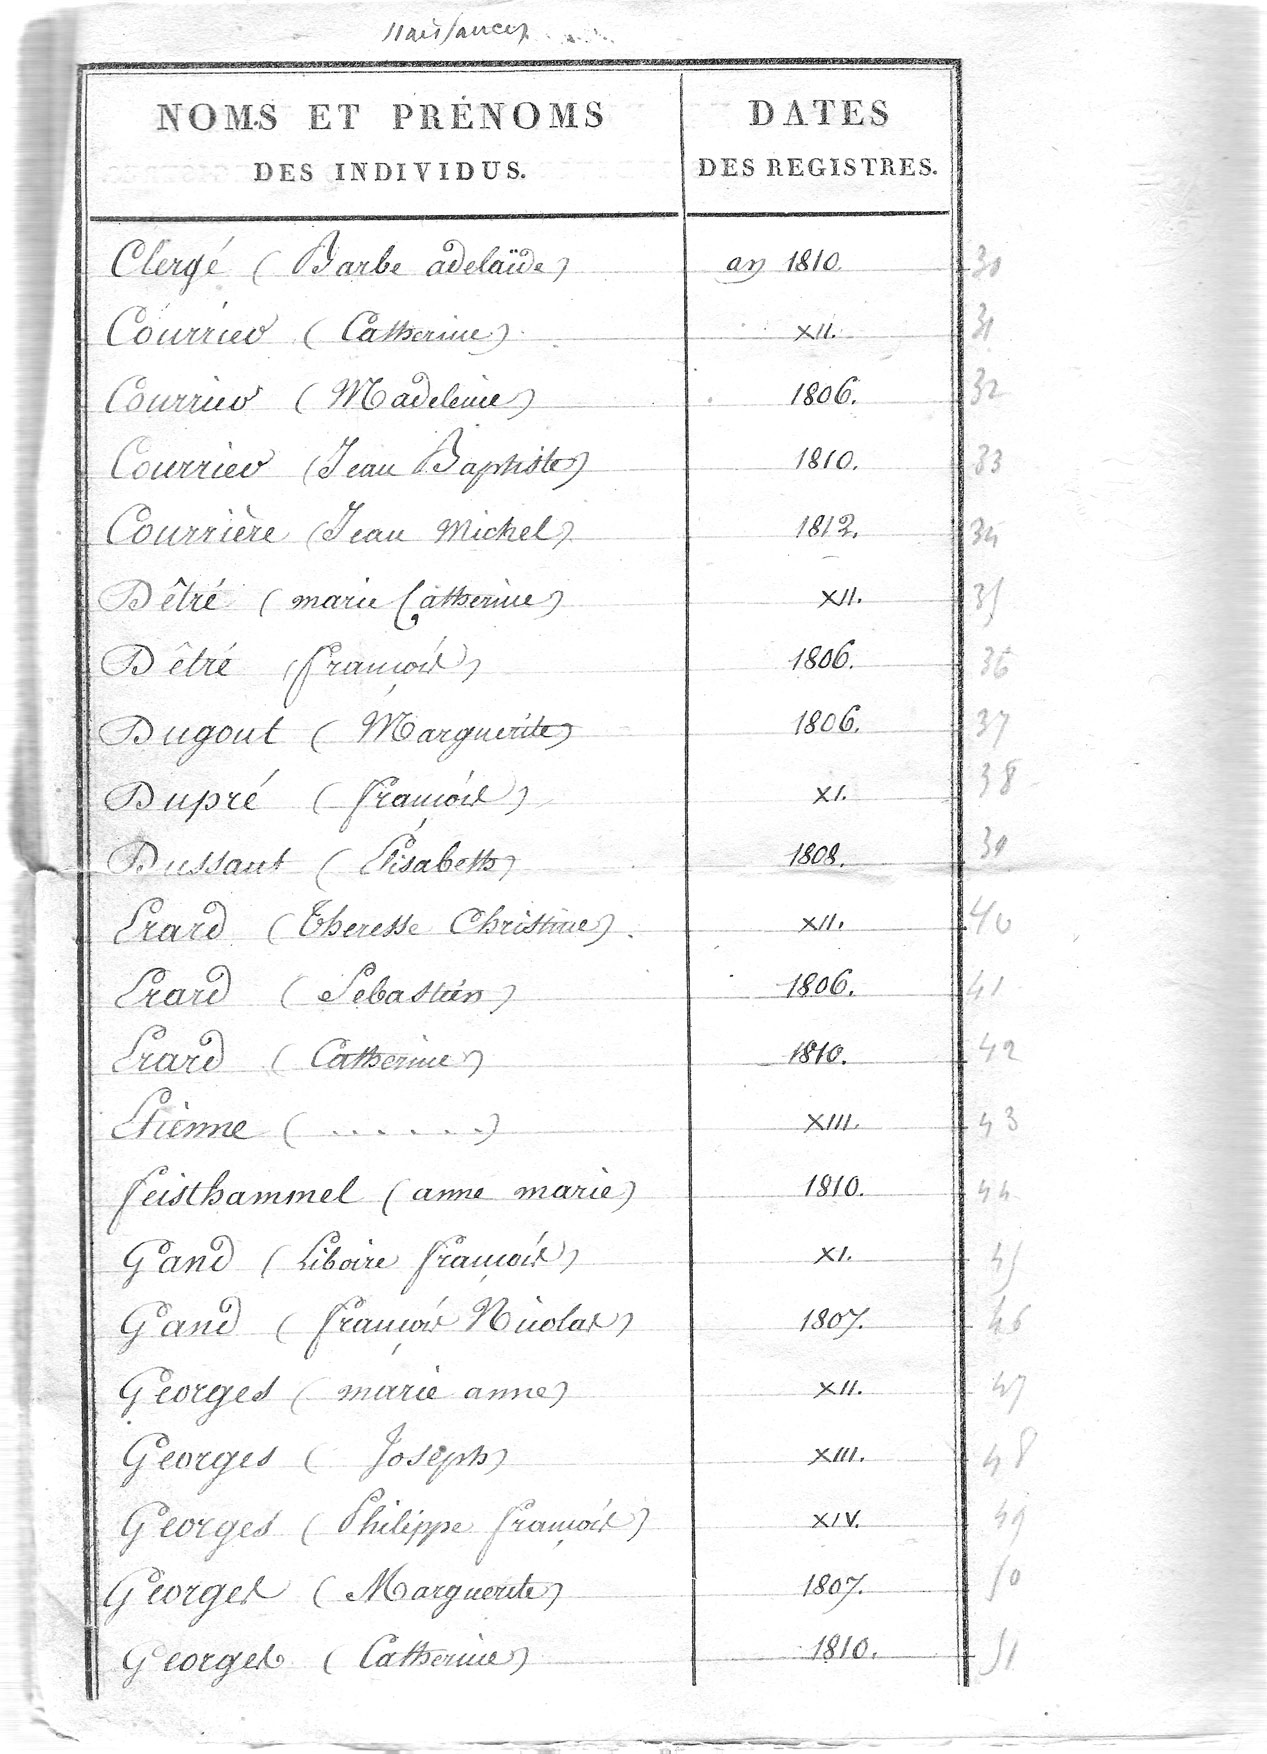 Naissances
NOMS ET PRÉNOMS
DES INDIVIDUS.
DATES
DES REGISTRES.
Clergé (Barbe adelaïde) an 1810. 30
Courrier (Catherine) XII. 31
Courrier (Madeleine) 1806. 32
Courrier (Jean Baptiste) 1810. 33
Courrière (Jean Michel) 1812. 34
Dêtré (marie Catherine) XII. 35
Dêtré (françois) 1806. 36
Dugout (Marguerite) 1806. 37
Dupré (françois) XI. 38
Dussaut (Elisabeth) 1808. 39
Erard (Theresse Christine) XII. 40
Erard (Sebastien) 1806. 41
Erard (Catherine) 1810. 42
Etienne (. . . . . .) XIII. 43
feisthammel (anne marie) 1810. 44
Gand (Liboire françois) XI. 45
Gand (françois Nicolas) 1807. 46
Georges (marie anne) XII. 47
Georges (Joseph) XIII. 48
Georges (Philippe françois) XIV. 49
Georges (Marguerite) 1807. 50
Georges (Catherine) 1810. 51